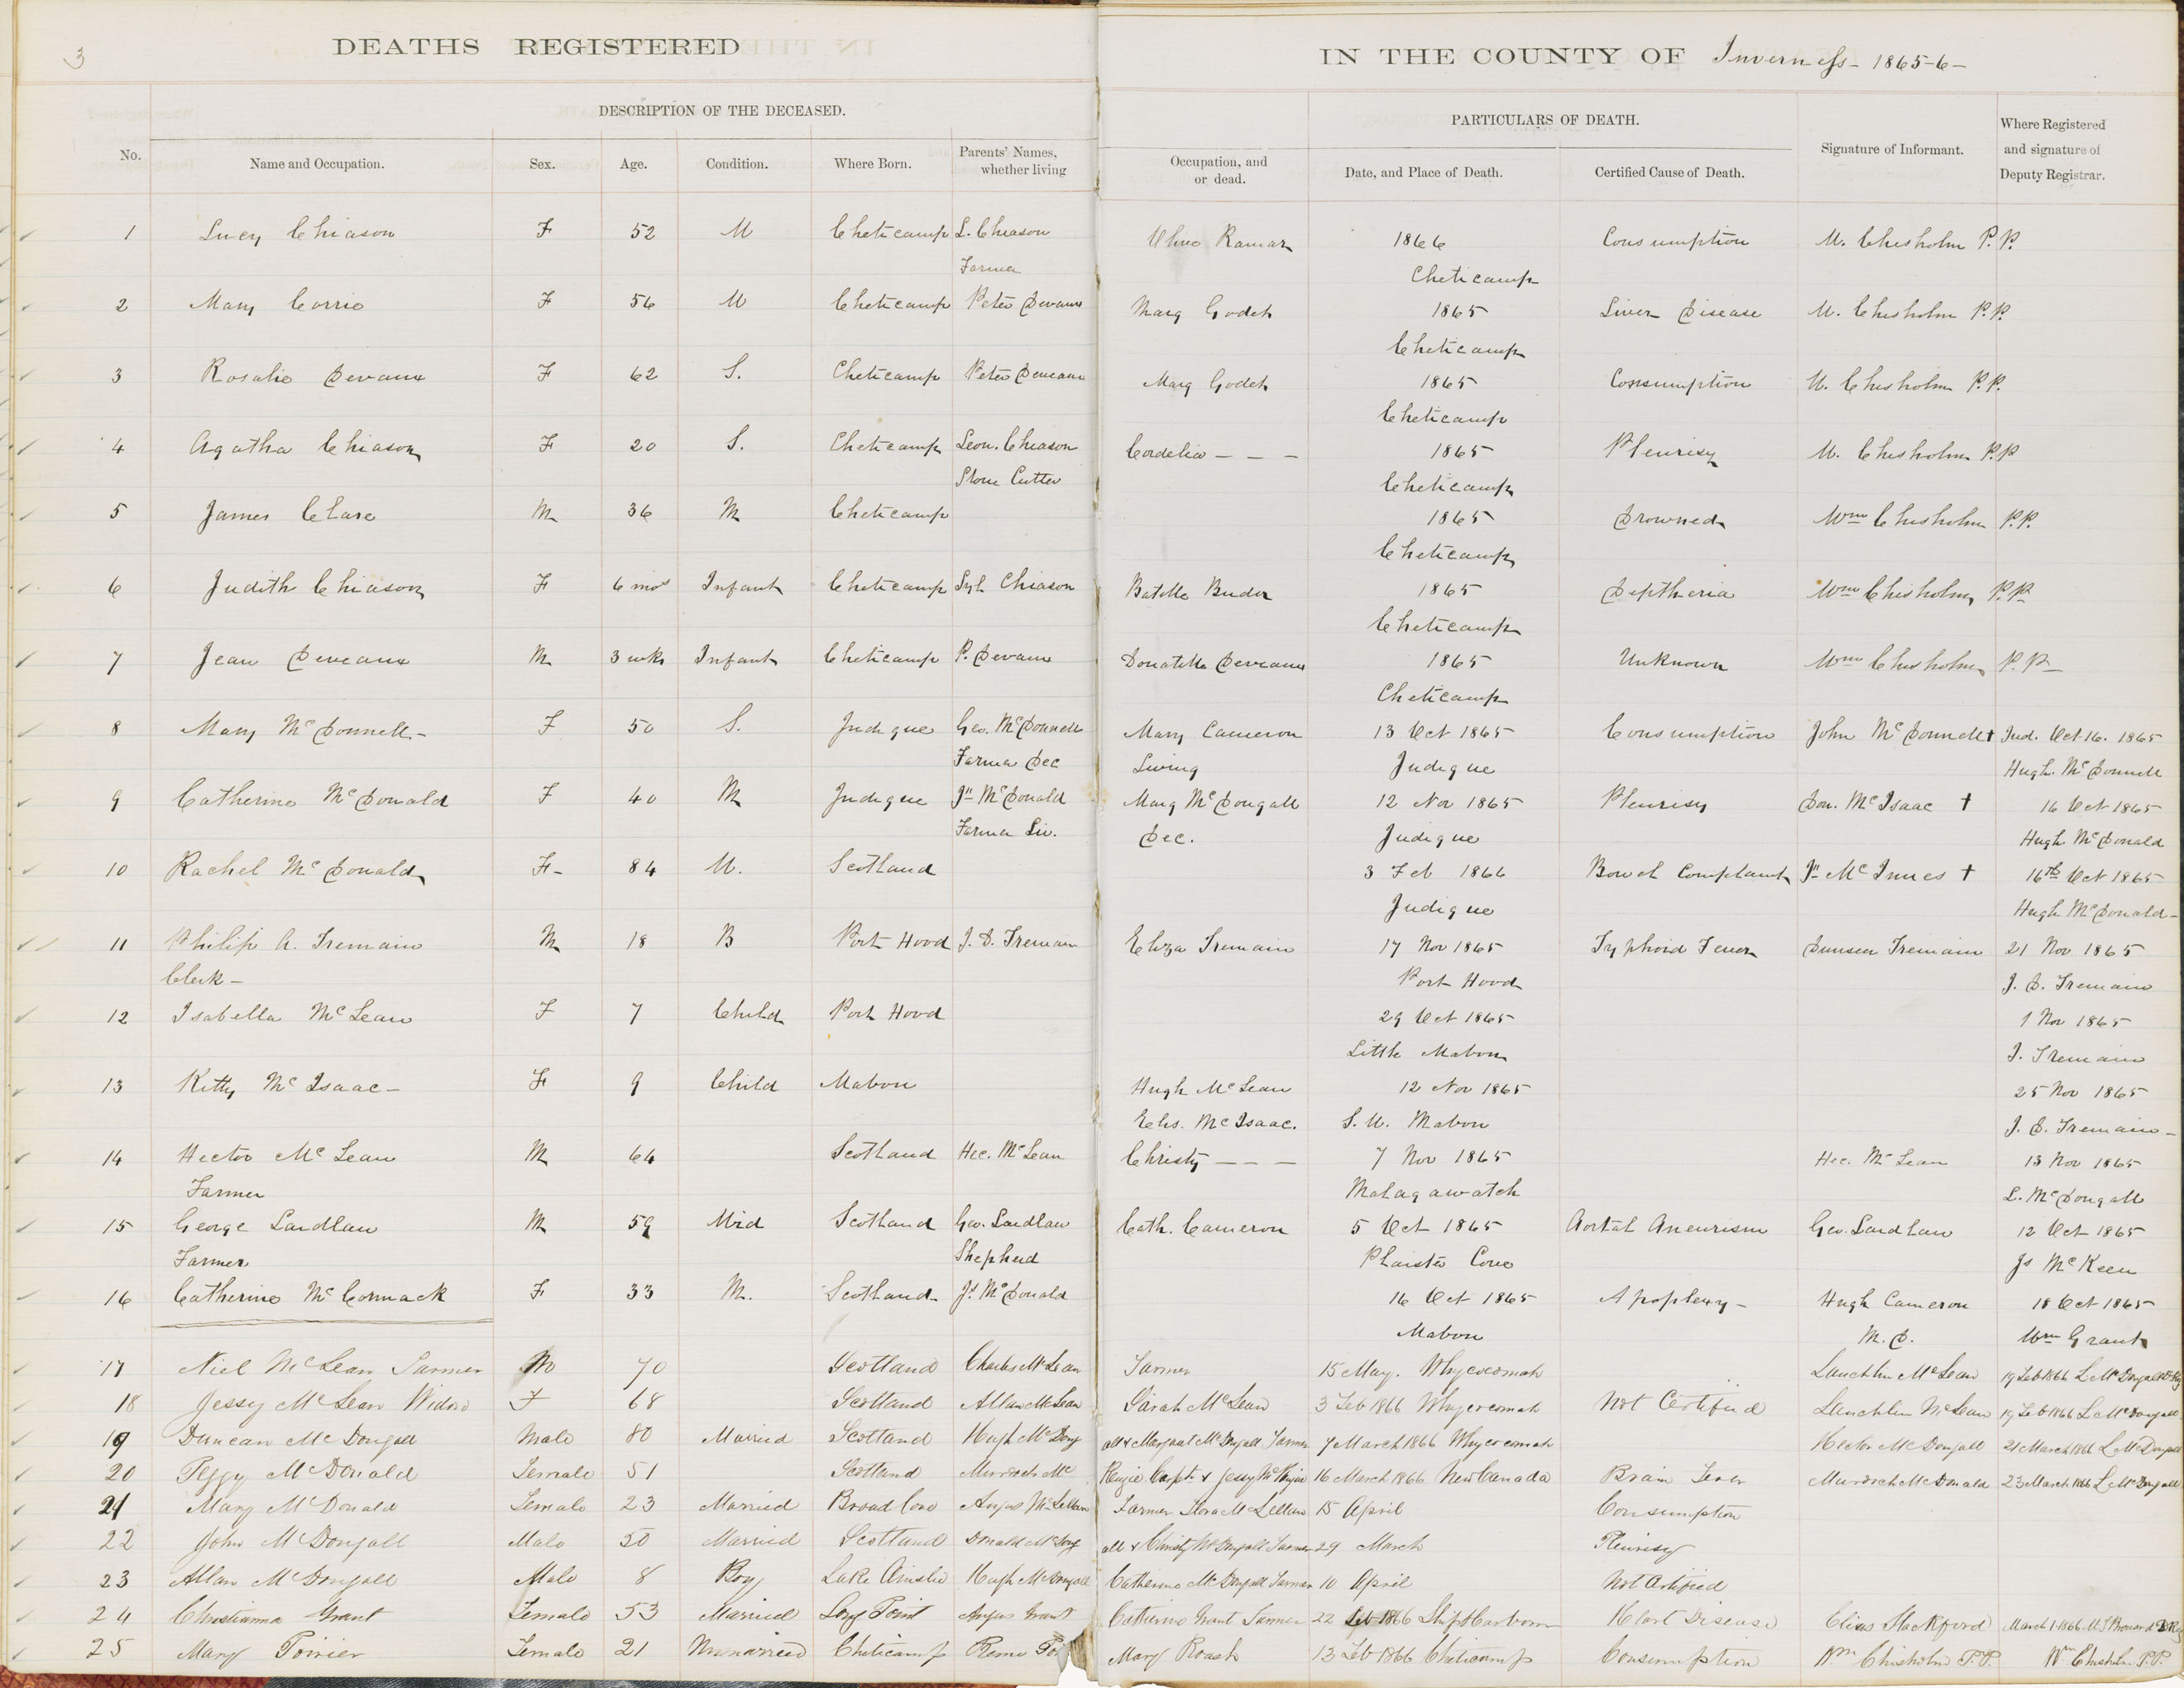 3
DEATHS REGISTERED IN THE COUNTY OF Inverness - 1865-6 -
DESCRIPTION OF THE DECEASED. PARTICULARS OF DEATH.
No. Name and Occupation. Sex. Age. Condition. Where Born. Parents' Names, whether living Occupation, and or dead. Date, and Place of Death. Certified Cause of Death. Signature of Informant. Where Registered and signature of Deputy Registrar.
1 Lucy Chiason F 52 M Cheticamp L. Chiason 1866 Consumption M. Chisholm P.P.
Farmer Cheticamp
2 Mary F 56 M Cheticamp Peter Devaux Marg Godet 1865 Liver Disease M. Chisholm P.P.
Cheticamp
3 Rosalie Devaux F 62 S. Cheticamp Peter Deveaux Marg Godet 1865 Consumption M. Chisholm P.P.
Cheticamp
4 Agatha Chiason F 20 S. Cheticamp Leon. Chiason Cordelia - - - 1865 Pleurisy M. Chisholm P.P
Stone Cutter Cheticamp
5 James Clare M 36 M Cheticamp 1865 Drowned Wm Chisholm P.P.
Cheticamp
6 Judith Chiason F 6 mos Infant Cheticamp Syl. Chiason 1865 Diptheria Wm Chisholm P.P.
Cheticamp
7 Jean Deveaux M 3 wks Infant Cheticamp P. Devaux Donatille Deveaux 1865 Unknown Wm Chisholm P.P-
Cheticamp
8 Mary McDonnell - F 50 S. Judique Geo. McDonnell Mary Cameron 13 Oct 1865 Consumption John McDonnell † Jud. Oct 16. 1865
Farmer Dec Living Judique Hugh McDonnell
9 Catherine McDonald F 40 M Judique Jn McDonald Marg McDougall 12 Nov 1865 Pleurisy Don. McIsaac † 16 Oct 1865
Farmer Liv. Dec. Judique Hugh McDonald
10 Rachel McDonald F- 84 M. Scotland 3 Feb 1866 Bowel Complaint Jn McInnes † 16th Oct 1865
Judique Hugh McDonald -
11 Philip A. Tremain M 18 B Port Hood J. D. Tremain Eliza Tremain 17 Nov 1865 Typhoid Fever Tremain 21 Nov 1865
Clerk - Port Hood J. D. Tremain
12 Isabella McLean F 7 Child Port Hood 29 Oct 1865 1 Nov 1865
Little Mabou J. Tremain
13 Kitty McIsaac - F 9 Child Mabou Hugh McLean 12 Nov 1865 25 Nov 1865
Elis. McIsaac. S. W. Mabou J. D. Tremain -
14 Hector McLean M 64 Scotland Hec. McLean Christy - - - 7 Nov 1865 Hec. McLean 13 Nov 1865
Farmer Malagawatch L. McDougall
15 George Laidlaw M 59 Mrd Scotland Geo. Laidlaw Cath. Cameron 5 Oct 1865 Aortal Aneurism Geo. Laidlaw 12 Oct 1865
Farmer Shepherd Plaister Cove Js McKeen
16 Catherine McCormack F 33 M. Scotland Js McDonald 16 Oct 1865 Apoplexy - Hugh Cameron 18 Oct 1865
Mabou M.D. Wm Grant
17 Niel McLean Farmer M 70 Scotland Charles McLean Farmer 15 May. Whycocomah Lauchlin McLean 19 Feb 1866 L McDougall D Reg
18 Jessy McLean Widow F 68 Scotland Allan McLean Sarah McLean 3 Feb 1866 Whycocomah Not Certified Lauchlin McLean 19 Feb 1866 L McDougall
19 Duncan McDougall Male 80 Married Scotland Hugh McDoug all & Margaret McDougall Farmer 7 March 1866 Whycocomah Hector McDougall 21 March 1866 L McDougall
20 Peggy McDonald Female 51 Scotland Murdoch Mc Kenzie Capt. & Jessy McKenzie 16 March 1866 New Canada Brain Fever Murdoch McDonald 23 March 1866 L McDougall
21 Mary McDonald Female 23 Married Broad Cove Angus McLellan Farmer Flora McLellan 15 April Consumption
22 John McDougall Male 50 Married Scotland Donald McDoug all & Christy McDougall Farmer 29 March Pleurisy
23 Allan McDougall Male 8 Boy Lake Ainslie Hugh McDougall Catherine McDougall Farmer 10 April Not Certified
24 Christianna Grant Female 53 Married Long Point Angus Grant Catherine Grant Farmer 22 Feb 1866 Ship Harbour Heart Disease March 1 1866
25 Mary Poirier Female 21 Unmarried Cheticamp Mary Roach 13 Feb 1866 Cheticamp Consumption Wm Chisholm P.P. Wm Chisholm P.P.